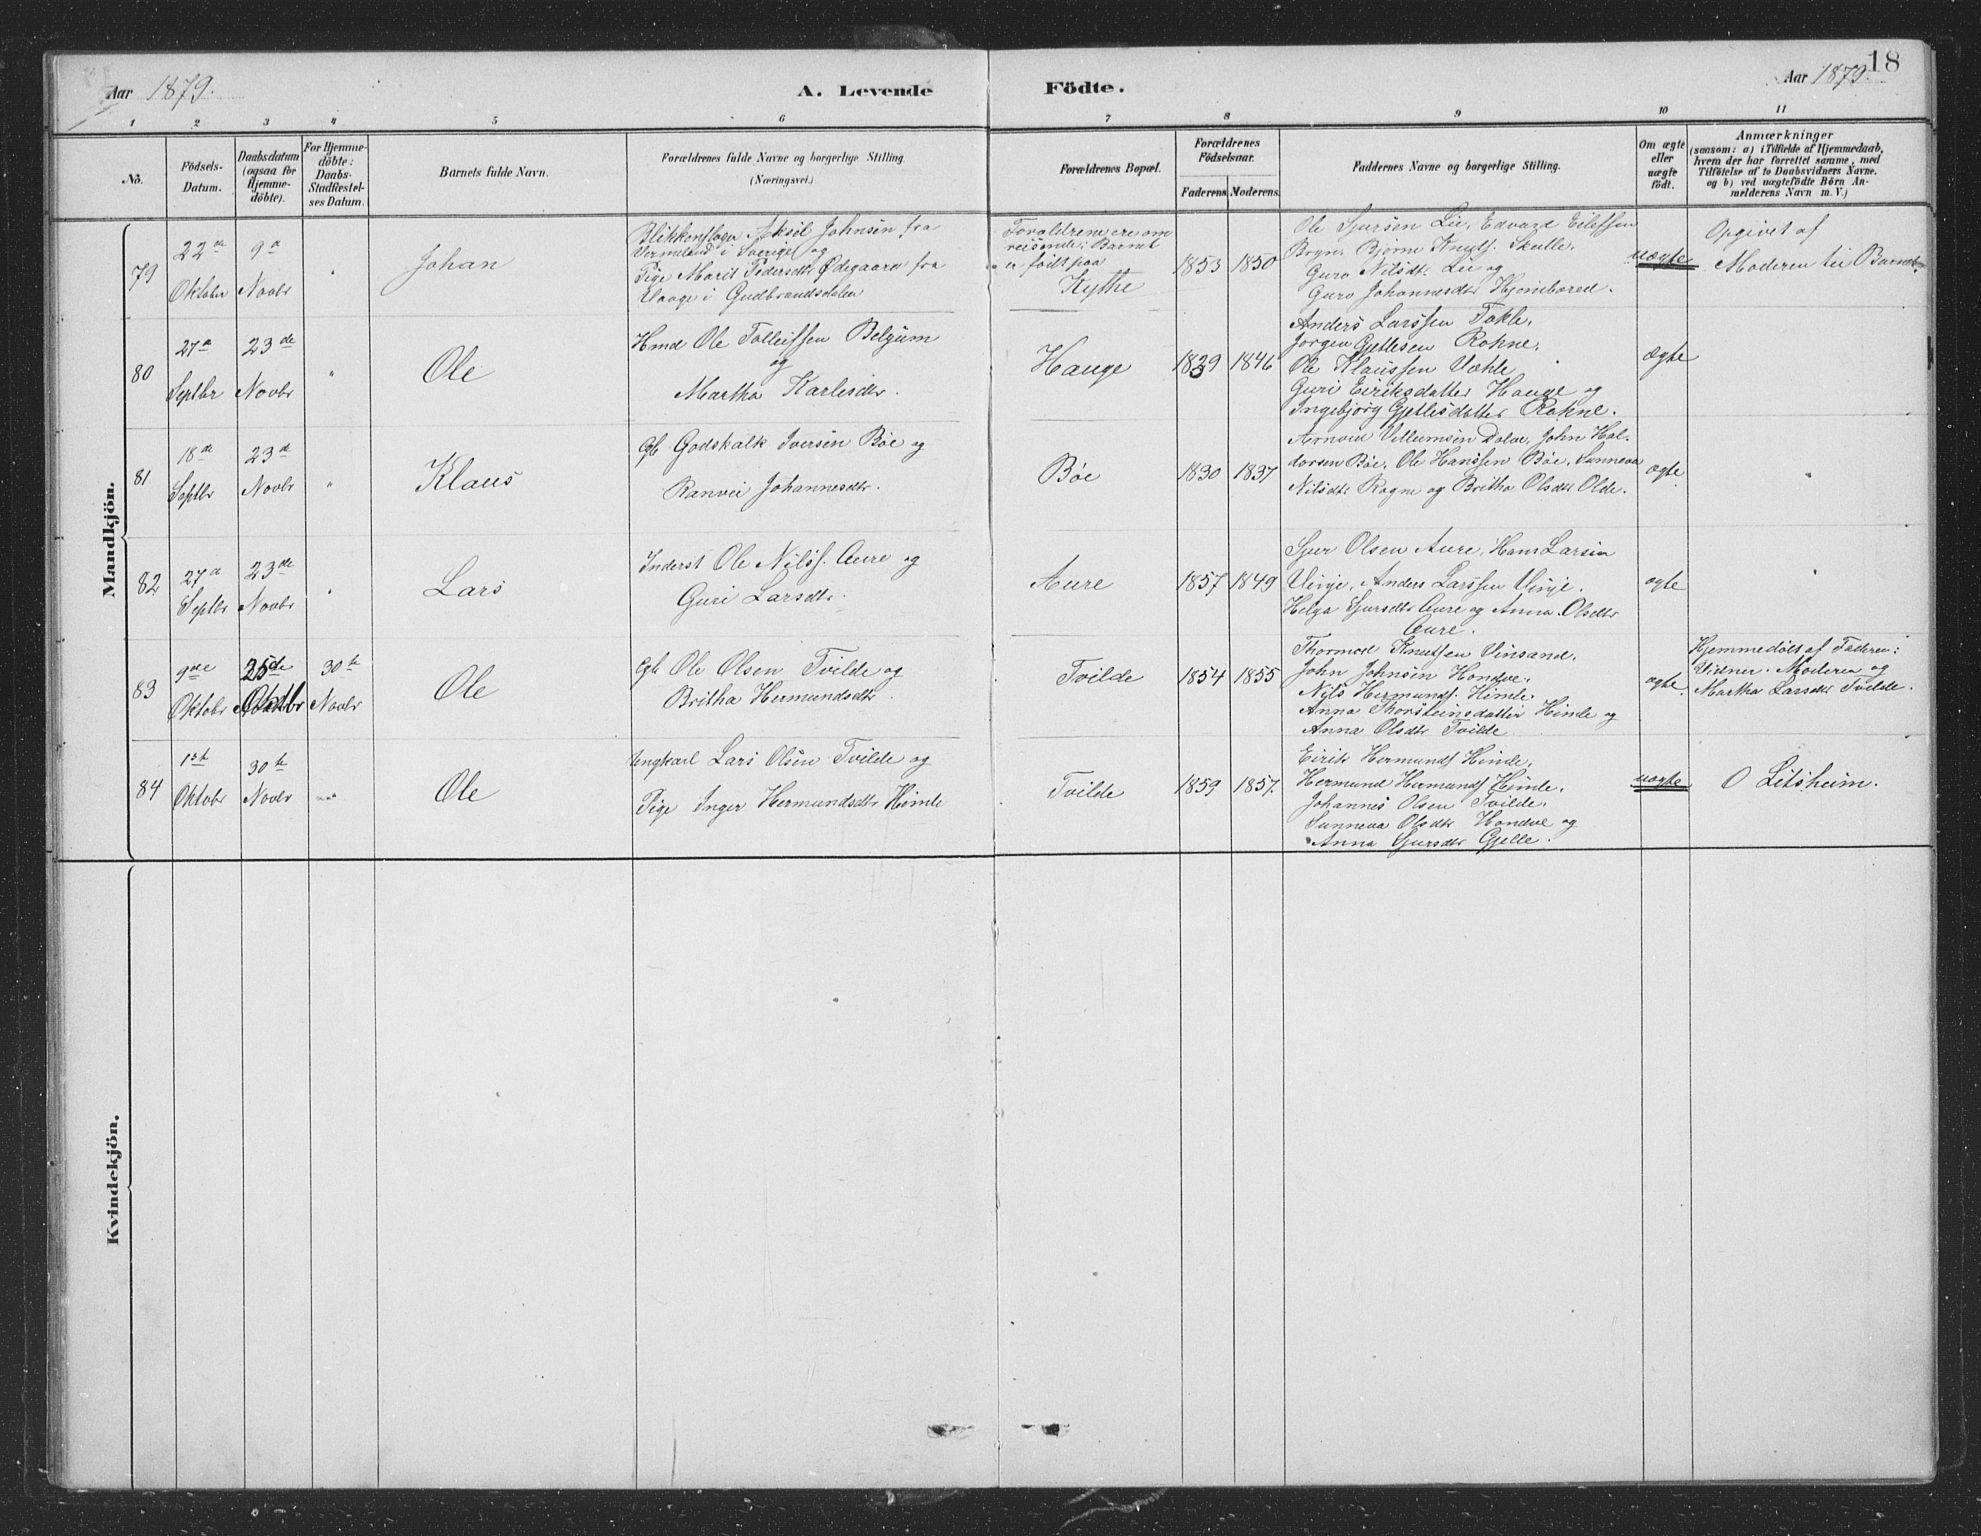 18
Aar 1879.
A. Levende
Födte.
Aar 1879.
1 2 3 4 5 6 7 8 9 10 11
No.
Födsels-
Datum.
Daabsdatum
(ogsaa for
Hjemme-
döbte).
For Hjemme-
döbte:
Daabs-
Stadfæstel-
ses Datum.
Barnets fulde Navn.
Forældrenes fulde Navne og borgerlige Stilling.
(Næringsvei.)
Forældrenes Bopæl.
Forældrenes
Födselsaar.
Faderens. Moderens.
Faddernes Navne og borgerlige Stilling.
Om ægte
eller
uægte
födt.
Anmærkninger
(saasom: a) i Tilfælde af Hjemmedaab,
hvem der har forrettet samme, med
Tilföielse af to Daabsvidners Navne.
og b) ved uægtefödte Börn An-
melderens Navn m. V.)
Mandkjön.
79
22de
Oktober
9de
Novbr
"
Johan
Aksel Johnsen fra
Vermeland i Sverige og
Pige Marit Pedersdtr Ødegaard fra
Vaage i Gudbrandsdalen
Forældrene ere om
reisende; Barnet
er födt paa
Kythe
1853 1850
Ole Sjursen Lie, Edvard Eilefsen
Bryn, Bjørne Knuts. Skulle,
Guro Nilsdtr Lie og
Guro Johannesdtr
uægte
Opgivet af
Moderen til Barnet
80
27de
Septbr
23de
Novbr
"
Ole
Hmd Ole Tolleifsen Belgum
og
Martha Karlesdtr.
Hauge
1829 1846
Anders Larssen Tokle,
Jørgen Gjetlesen Rokne,
Ole Klaussen
Guri Eiriksdatter Hauge og
Ingebjørg Gjetlesdatter Rokne.
ægte
81
18de
Septbr
23de
Novbr
"
Klaus
Gb Godskalk Iversen Bøe og
Ranvei Johannesdtr.
Bøe
1830 1837
Villumsen Dolve, John Hal-
dorsen Bøe, Ole Hanssen Bøe, Sunneva
Nilsdtr Rogne og Britha Olsdtr Olde.
ægte
"
82
27de
Septbr
23de
Novbr
"
Lars
Inderst Ole Nilss. Aure og
Guri Larsdtr.
Aure
1857 1849
Sjur Olsen Aure, Hans Larsen
Vinje, Anders Larssen Vinje,
Helga Sjursdtr Aure og Anna Olsdtr
Aure.
ægte
"
83
9de
Oktobr
25de
Oktbr
30te
Novbr
Ole
Gb Ole Olsen Tvilde og
Britha Hermundsdtr
Tvilde
1854 1855
Thormod Knutsen Vinsand,
John Johnsen Hondve,
Nils Hermunds. Himle,
Anna Thorsteinsdatter Himle og
Anna Olsdtr Tvilde
ægte.
Hjemmedøbt af Faderen;
Vidner. Moderen og
Martha Larsdtr Tvilde.
84
1ste
Oktobr
30te
Novbr
"
Ole
Ungkarl Lars Olsen Tvilde og
Pige Inger Hermundsdtr Himle
Tvilde
1859 1857.
Eirik Hermunds. Himle,
Hermund Hermunds. Himle,
Johannes Olsen Tvilde,
Sunneva Olsdtr Hondve og
Anna Sjursdtr Gjelle.
uægte
O Litsheim.
Kvindekjön.